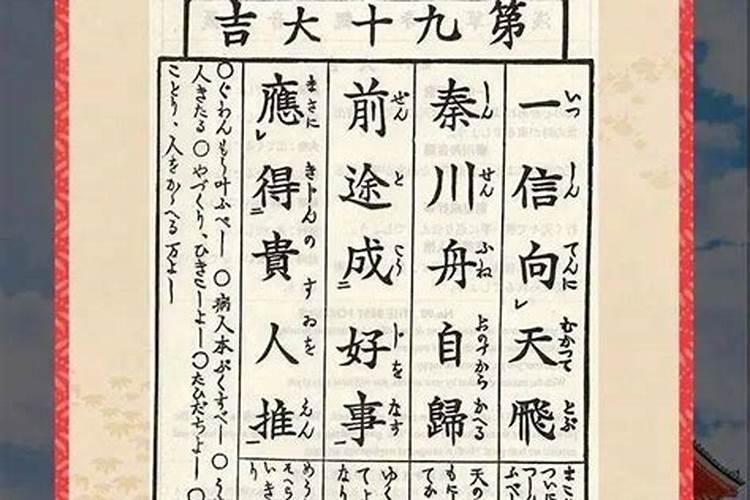 第九十大吉
一信向天飛
いつ しん てんに むかつて とぶ
秦川舟自歸
しん せん ふね おのづから かへる
前途成好事
ぜん と こうじを なす
應得貴人推
まさに きじんの すおを えん
○ぐわんもう叶ふべし ○病人本ぷくすべし ○う
人きたる ○やづくり、ひきこしよし ○たびだちよし ○
ことり、人をかゝへる万よし